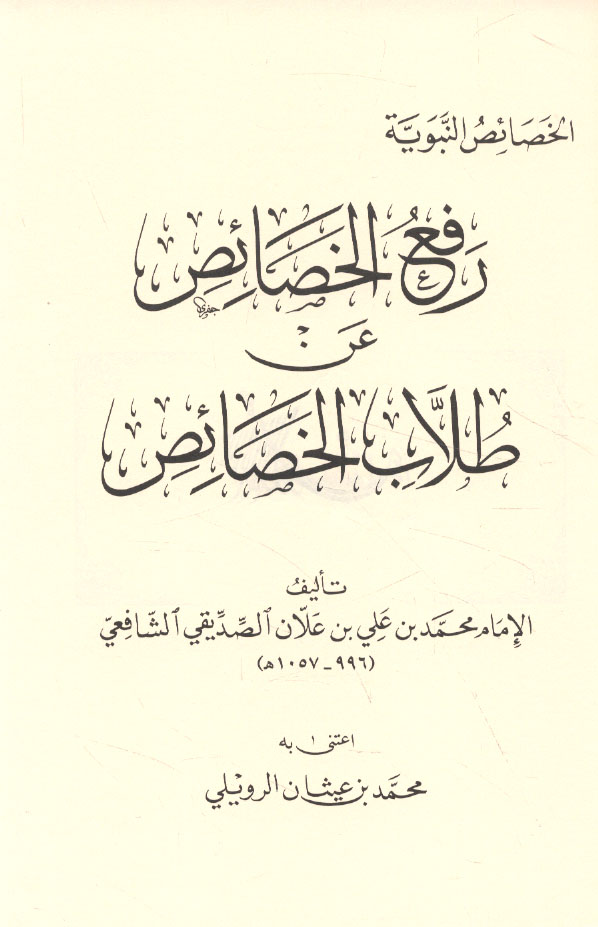 الخَصَائِصُ النَّبَوِيَّة
رَفعُ الخَصَائِصِ
عَن
طُلَّابِ الخَصَائِصِ
تأليفُ
الإِمَام محمَّد بن عَلي بن عَلّان الصِّدِّيقي الشَّافِعيّ
(٩٩٦ - ١٠٥٧هـ)
اعتنى به
محمَّد بن عيثان الرويلي